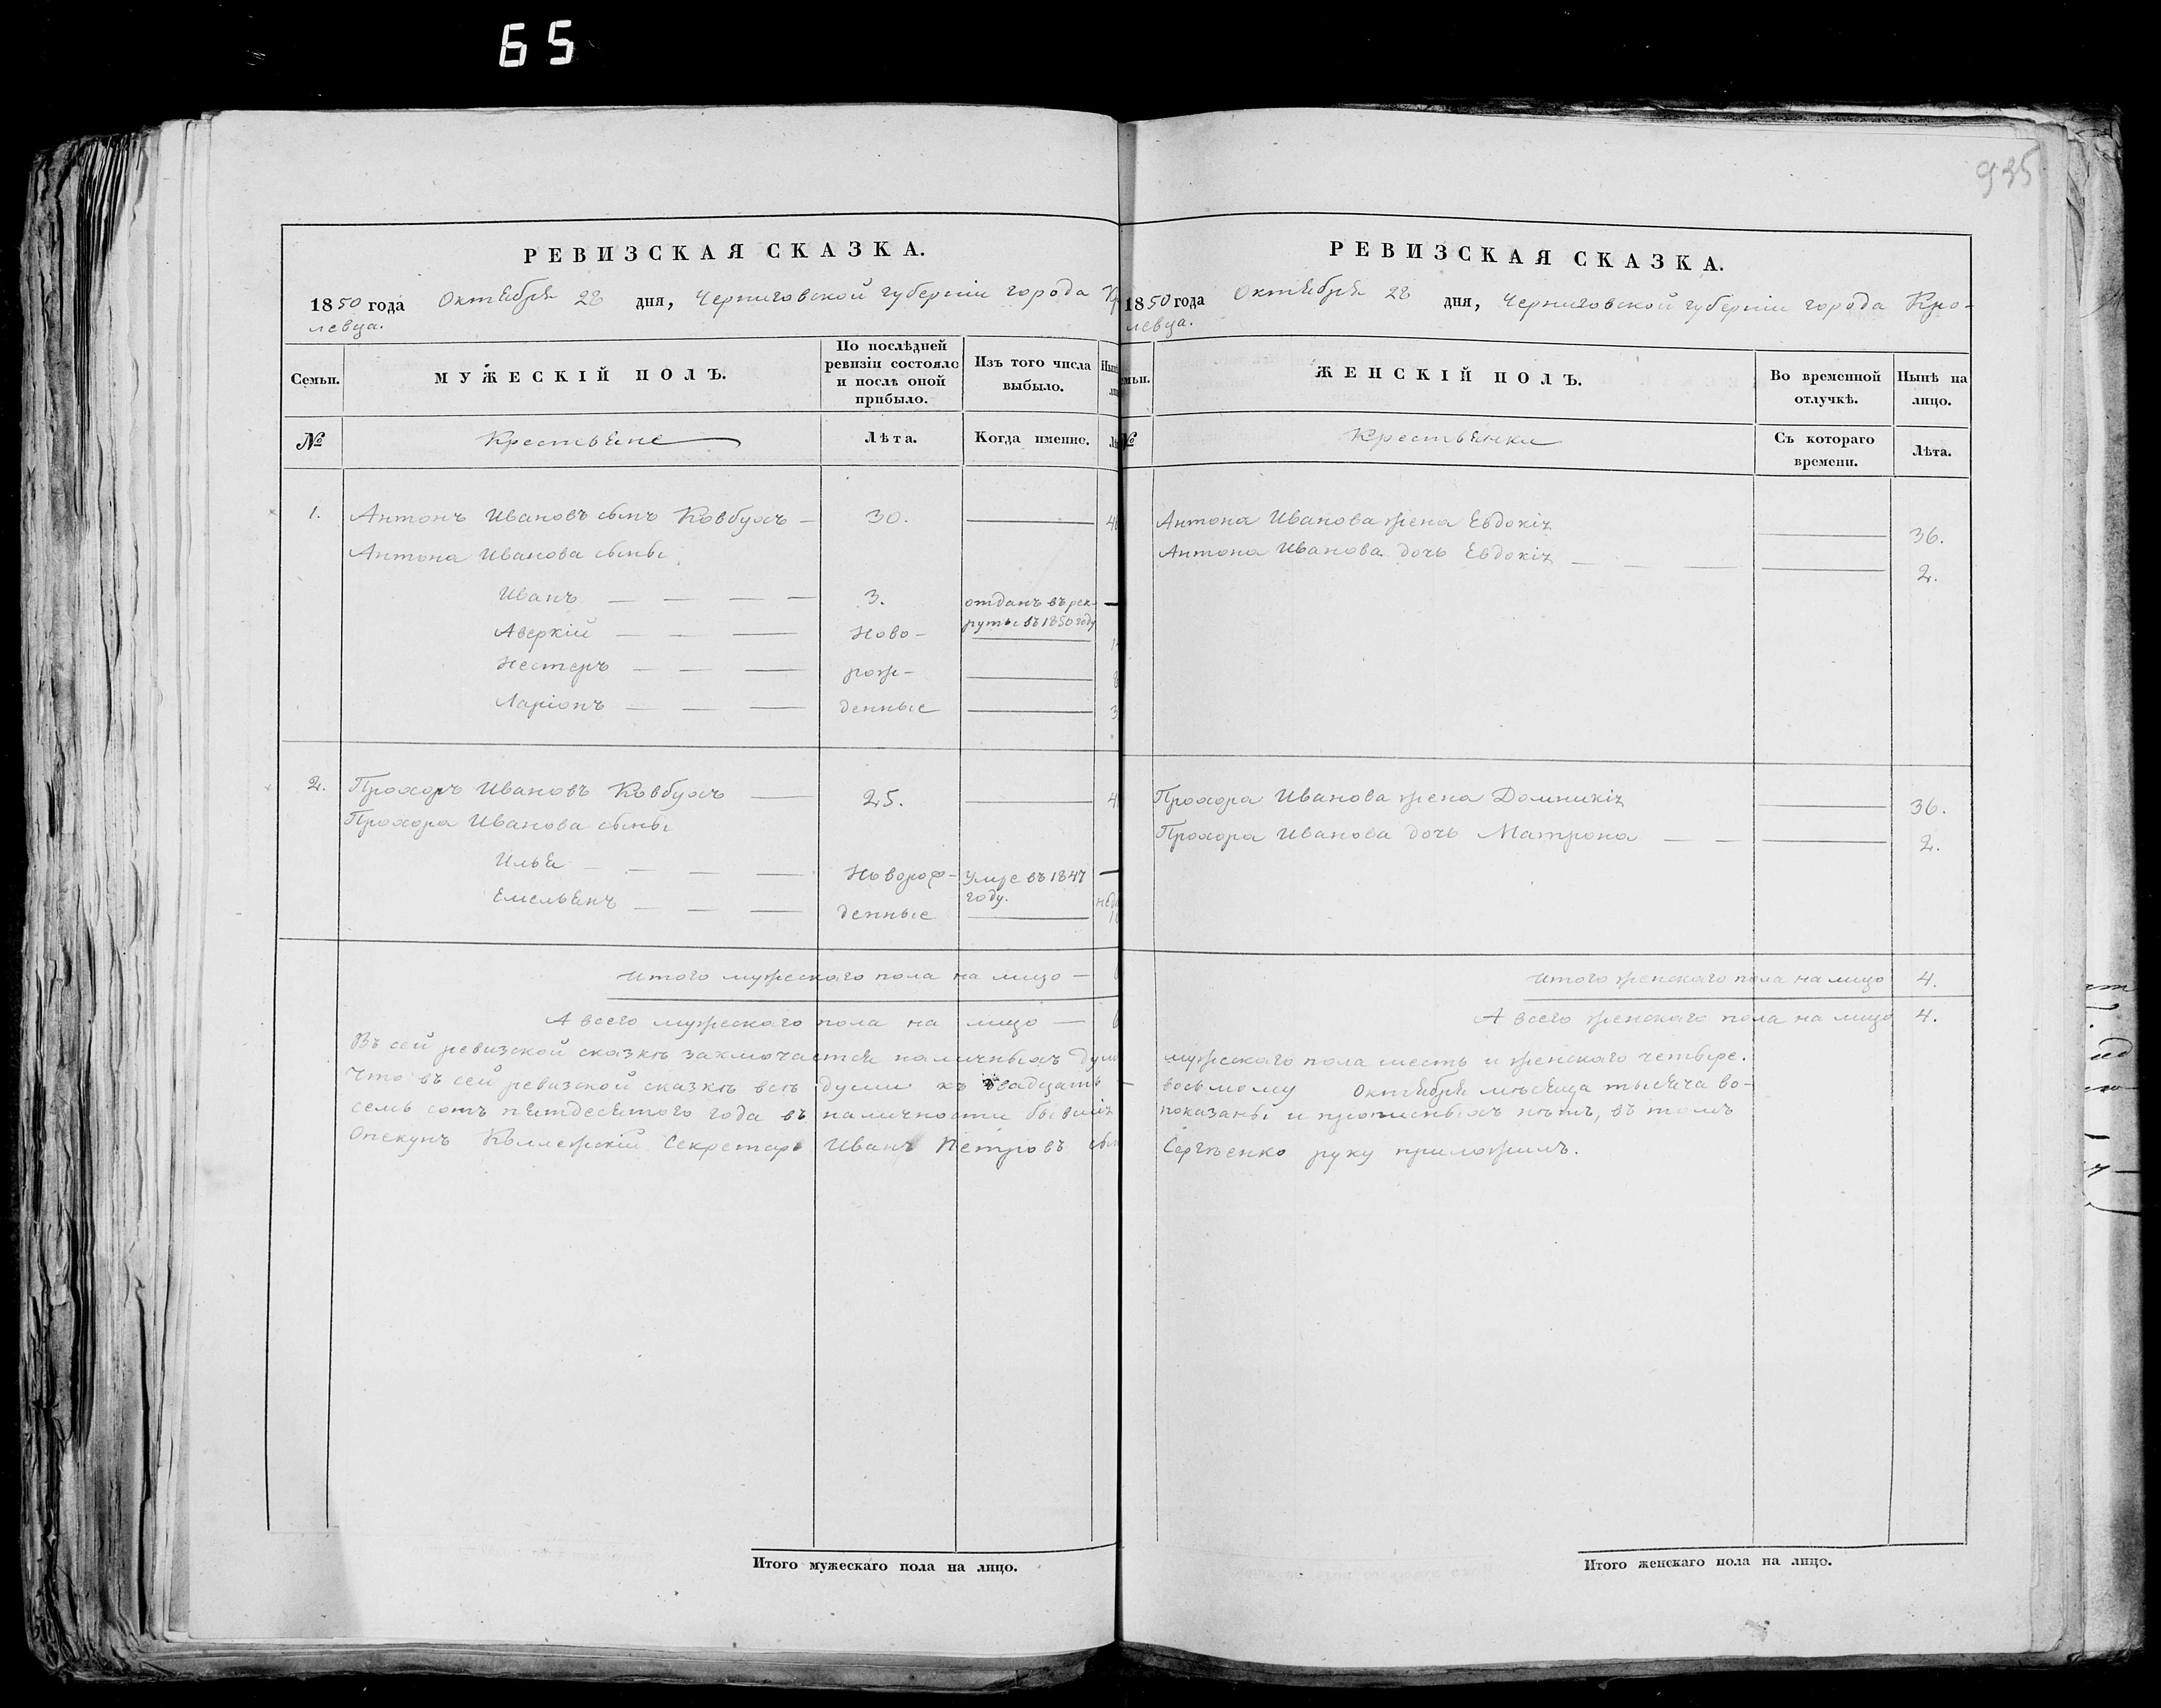 65
935
РЕВИЗСКАЯ СКАЗКА.
1850 года Октября 28 дня, Черниговской губерніи города Кр
левца.
Семьи.
МУЖЕСКІЙ ПОЛЪ.
По послѣдней
ревизіи состояло
и послѣ оной
прибыло.
Изъ того числа
выбыло.
№
Крестьяне
Лѣта.
Когда именно.
1. Антонъ Ивановъ сынъ Ковбухъ — 30.
Антона Иванова сыны
Иванъ 3. отданъ въ рек-
руты въ 1850 году
Аверкій Ново-
Нестеръ рож-
Ларіонъ денные
2. Прохоръ Ивановъ Ковбухъ 25.
Прохора Иванова сыны
Илья Новорож- Умре въ 1847
году.
Емельянъ денные
Итого мужескаго пола на лицо —
А всего мужескаго пола на лицо —
Въ сей ревизской сказкѣ заключается наличныхъ душ
Что въ сей ревизской сказкѣ всѣ души къ двадцать
семь сотъ пятдесятого года въ наличности бывшія
Опекунъ Коллежскій Секретарь Иванъ Петровъ сы
Итого мужескаго пола на лицо.
РЕВИЗСКАЯ СКАЗКА.
1850 года Октября 28 дня, Черниговской губерніи города Кро-
левца.
мьи.
ЖЕНСКІЙ ПОЛЪ.
Во временной
отлучкѣ.
Нынѣ на
лицо.
№
Крестьянки
Съ котораго
времени.
Лѣта.
Антона Иванова жена Евдокія 36.
Антона Иванова дочь Евдокія 2.
Прохора Иванова жена Домникія 36.
Прохора Иванова дочь Матрона 2.
Итого женскаго пола на лицо 4.
А всего женскаго пола на лицо 4.
мужескаго пола шесть и женскаго четыре.
восьмому Октября мѣсяца тысяча во-
показаны и прописныхъ нѣтъ, въ томъ
Сергѣенко руку приложилъ.
Итого женскаго пола на лицо.